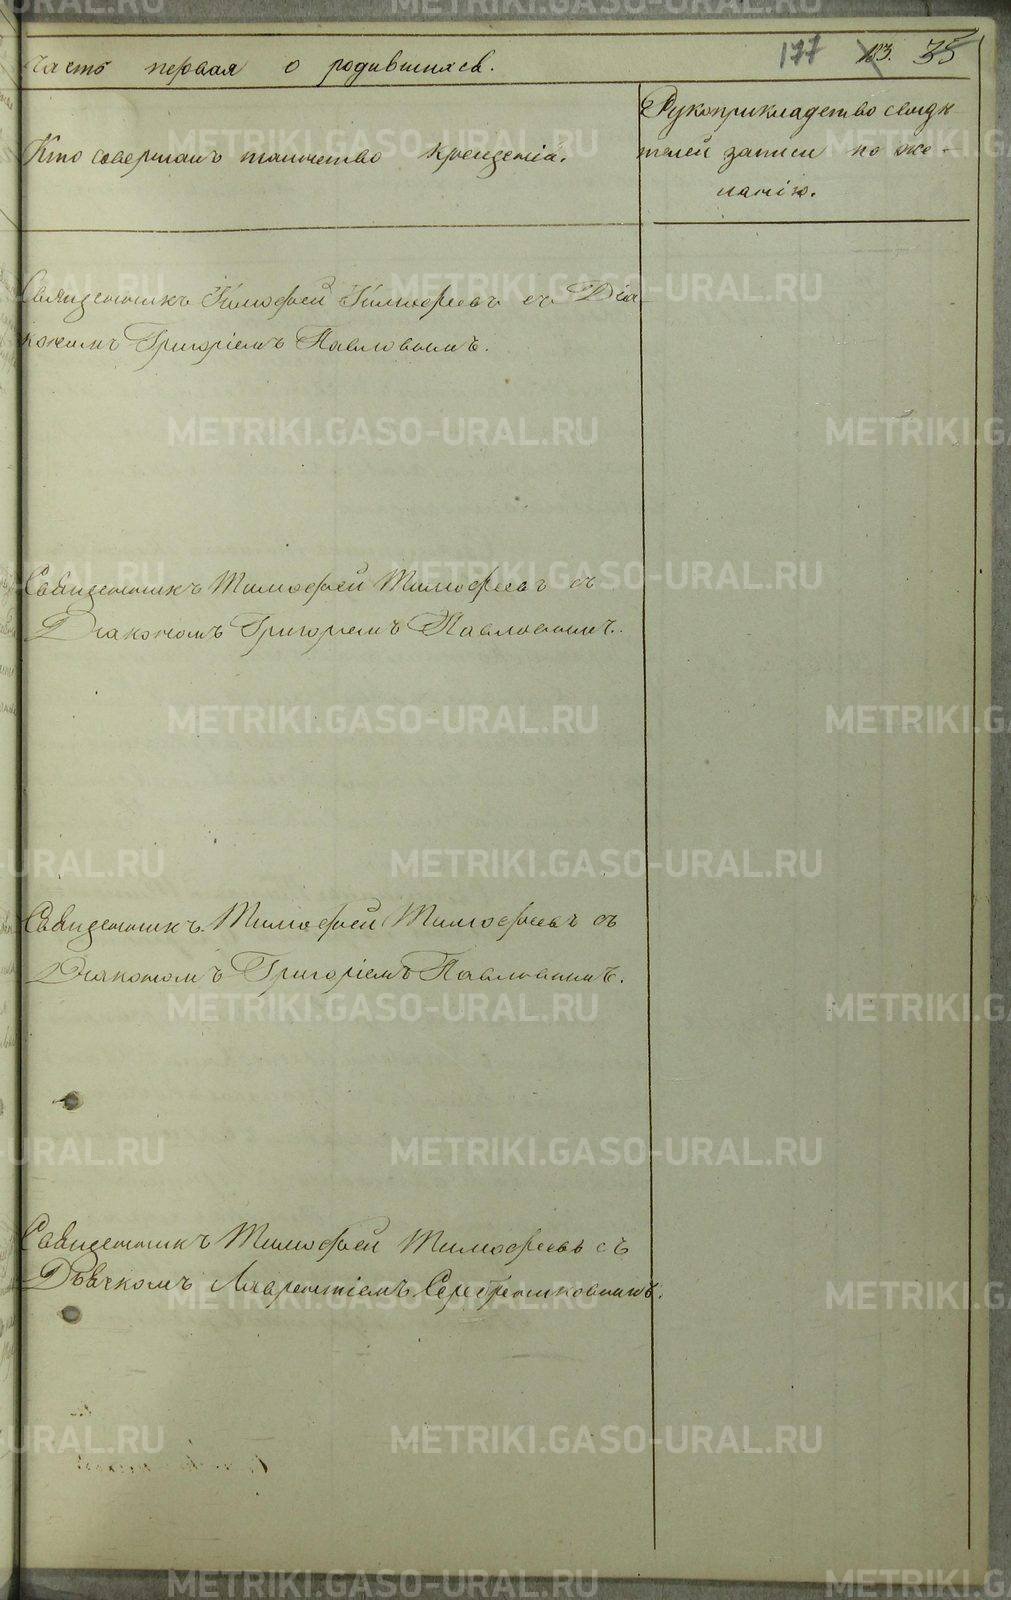 177 183. 35
Часть первая о родившихся.
Кто совершалъ таинство крещенія.
Рукоприкладство свидѣ-
телей записи по же-
ланію.
Священникъ Тимофей Тимофеевъ съ Діа-
кономъ Григоріемъ Павловымъ.
Священникъ Тимофей Тимофеевъ съ
Діакономъ Григоріемъ Павловымъ.
Священникъ Тимофей Тимофеевъ съ
Діакономъ Григоріемъ Павловымъ.
Священникъ Тимофей Тимофеевъ съ
Дьячкомъ Лаврентіемъ Серебренниковымъ.
METRIKI.GASO-URAL.RU